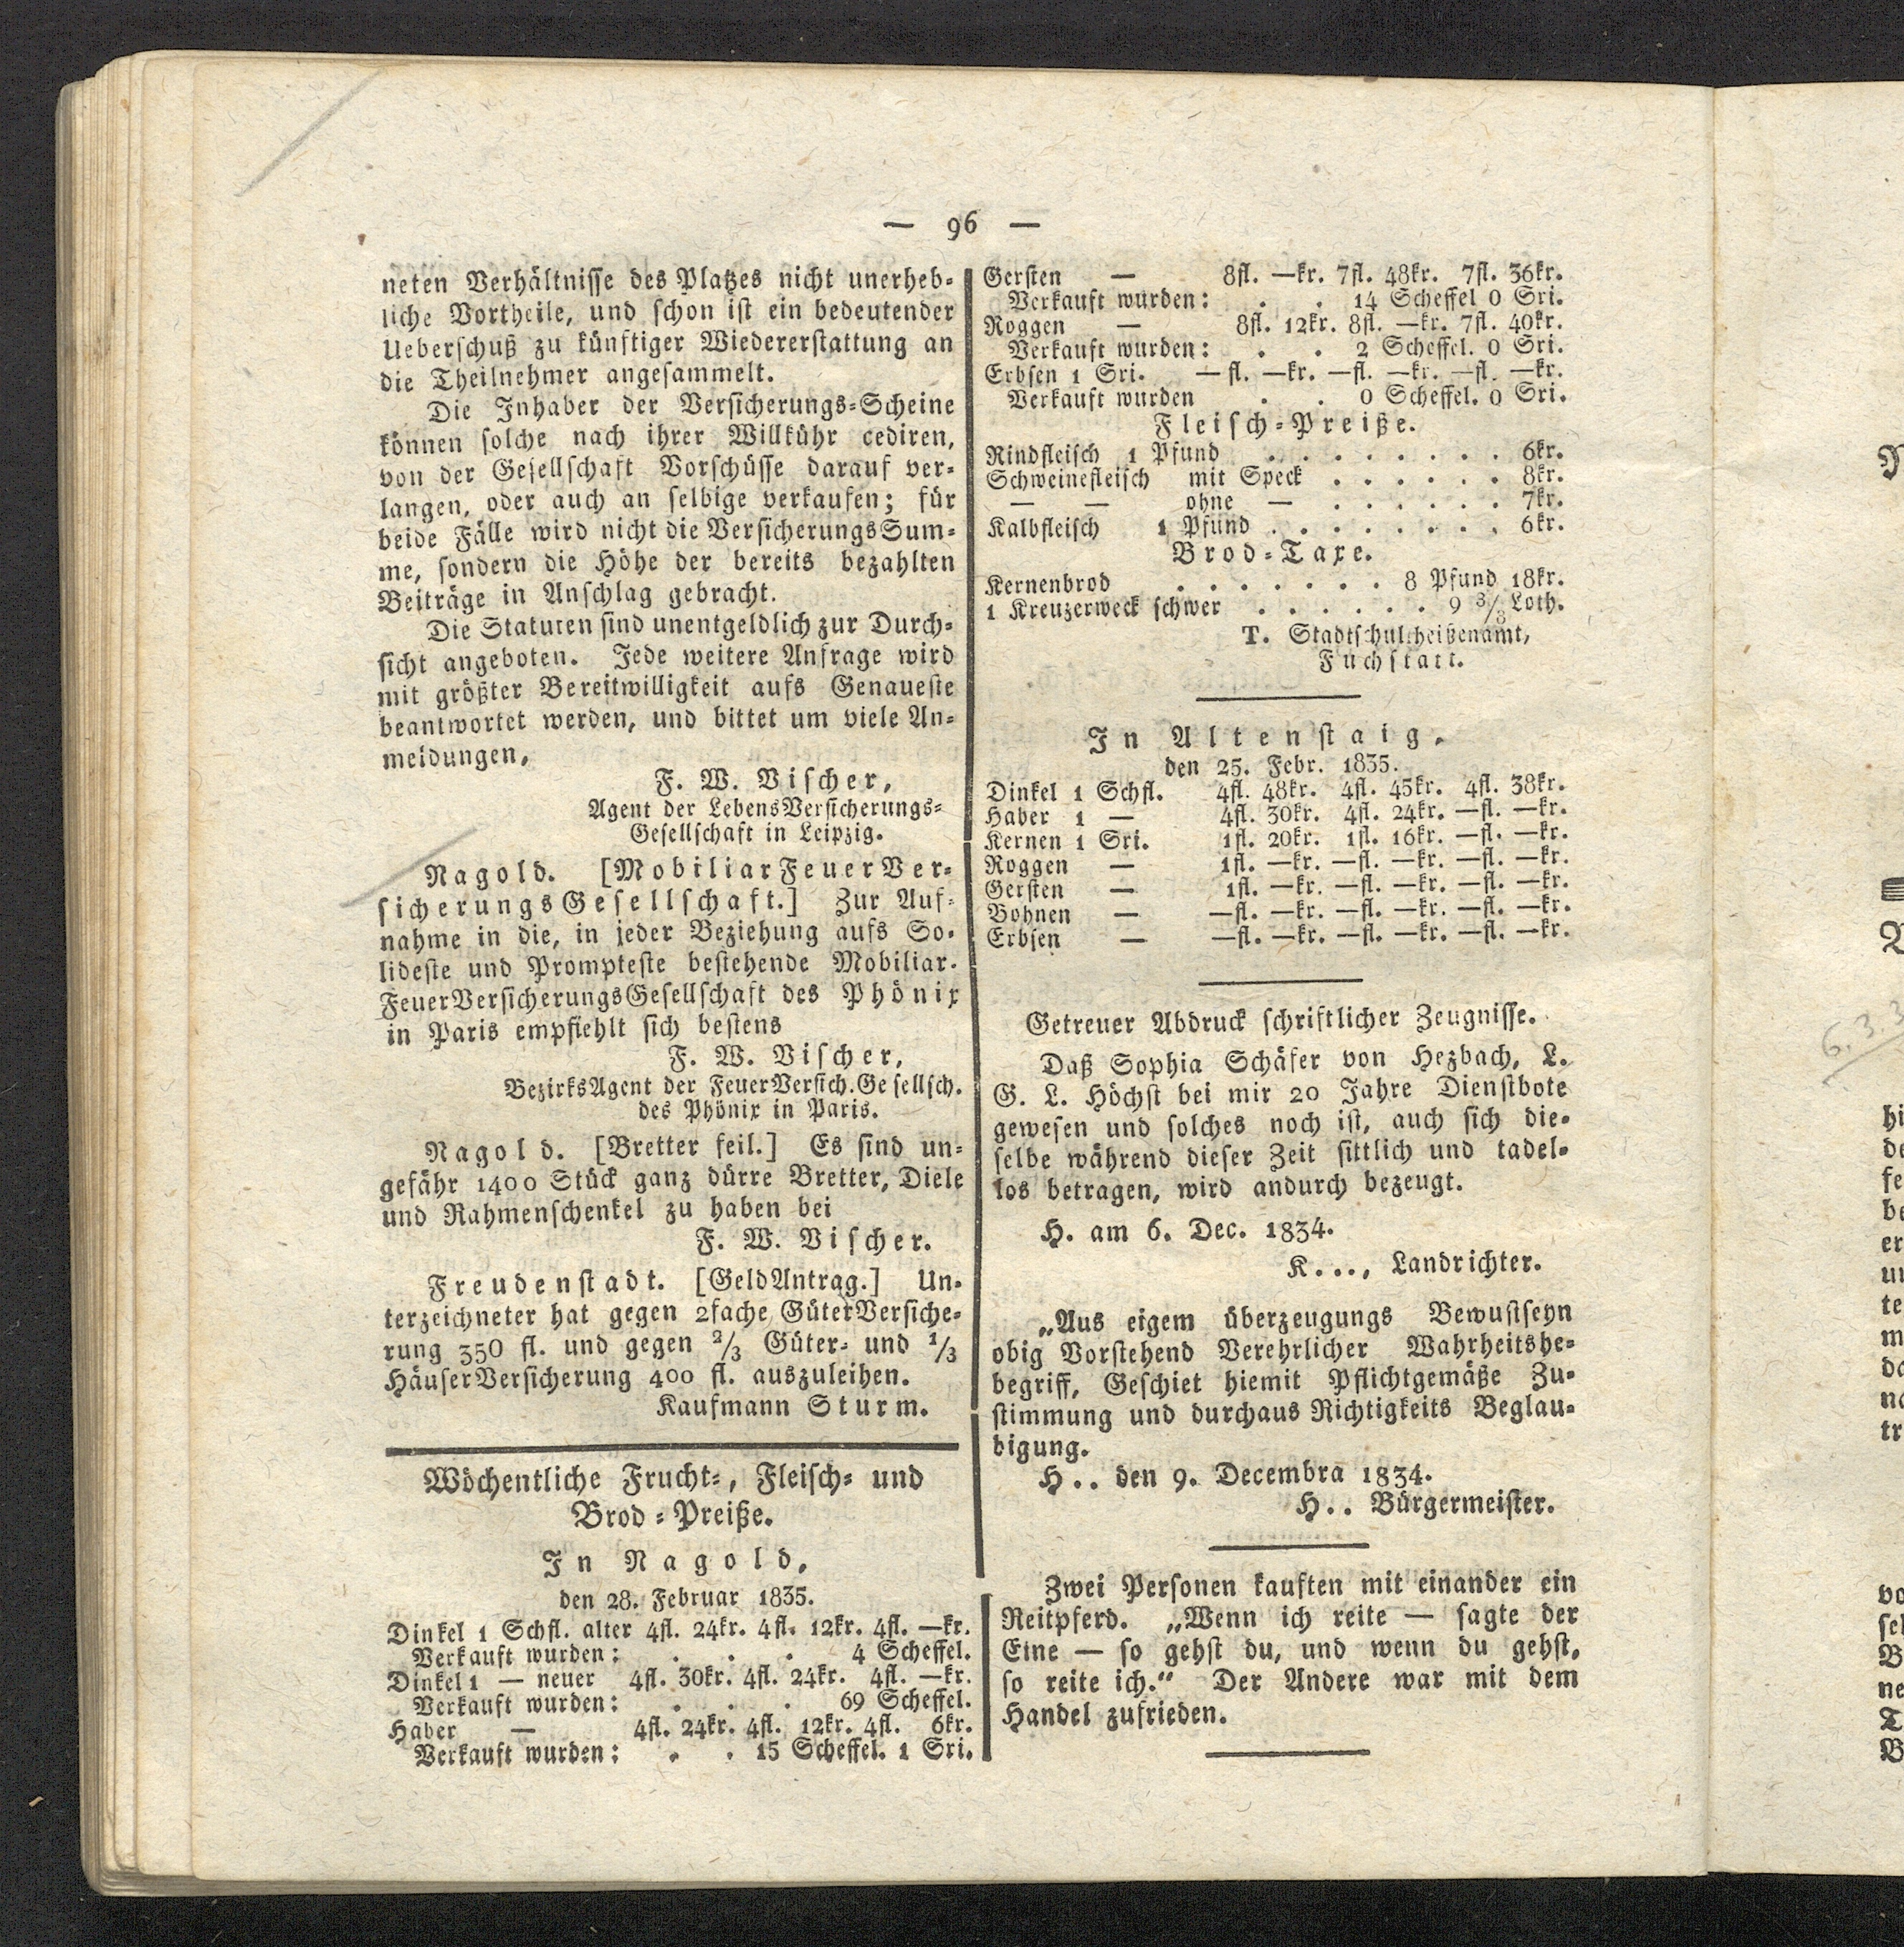 — 96 —
neten Verhältnisse des Platzes nicht unerheb-
liche Vortheile, und schon ist ein bedeutender
Ueberschuß zu künftiger Wiedererstattung an
die Theilnehmer angesammelt.
Die Inhaber der Versicherungs-Scheine
können solche nach ihrer Willkühr cediren,
von der Gesellschaft Vorschüsse darauf ver-
langen, oder auch an selbige verkaufen; für
beide Fälle wird nicht die VersicherungsSum-
me, sondern die Höhe der bereits bezahlten
Beiträge in Anschlag gebracht.
Die Statuten sind unentgeldlich zur Durch-
sicht angeboten. Jede weitere Anfrage wird
mit größter Bereitwilligkeit aufs Genaueste
beantwortet werden, und bittet um viele An-
meldungen,
F. W. Vischer,
Agent der LebensVersicherungs-
Gesellschaft in Leipzig.
Nagold. [MobiliarFeuerVer-
sicherungsGesellschaft.] Zur Auf-
nahme in die, in jeder Beziehung aufs So-
lideste und Prompteste bestehende Mobiliar-
FeuerVersicherungsGesellschaft des Phönix
in Paris empfiehlt sich bestens
F. W. Vischer,
BezirksAgent der FeuerVersich.Gesellsch.
des Phönix in Paris.
Nagold. [Bretter feil.] Es sind un-
gefähr 1400 Stück ganz dürre Bretter, Diele
und Rahmenschenkel zu haben bei
F. W. Vischer.
Freudenstadt. [GeldAntrag.] Un-
terzeichneter hat gegen 2fache GüterVersiche-
rung 350 fl. und gegen 2/3 Güter- und 1/3
HäuserVersicherung 400 fl. auszuleihen.
Kaufmann Sturm.
Wöchentliche Frucht-, Fleisch- und
Brod-Preiße.
In Nagold,
den 28. Februar 1835.
Dinkel 1 Schfl. alter 4fl. 24kr. 4fl. 12kr. 4fl. —kr.
Verkauft wurden: . . . 4 Scheffel.
Dinkel 1 — neuer 4fl. 30kr. 4fl. 24kr. 4fl. —kr.
Verkauft wurden: . . . 69 Scheffel.
Haber — 4fl. 24kr. 4fl. 12kr. 4fl. 6kr.
Verkauft wurden: . . 15 Scheffel. 1 Sri.
Gersten — 8fl. —kr. 7fl. 48kr. 7fl. 36kr.
Verkauft wurden: . . 14 Scheffel 0 Sri.
Roggen — 8fl. 12kr. 8fl. —kr. 7fl. 40kr.
Verkauft wurden: . . 2 Scheffel. 0 Sri.
Erbsen 1 Sri. —fl. —kr. —fl. —kr. —fl. —kr.
Verkauft wurden . . 0 Scheffel. 0 Sri.
Fleisch-Preiße.
Rindfleisch 1 Pfund . . . . . . . . 6kr.
Schweinefleisch mit Speck . . . . . . 8kr.
— — ohne — . . . . . . 7kr.
Kalbfleisch 1 Pfund . . . . . . . . 6kr.
Brod-Taxe.
Kernenbrod . . . . . . . 8 Pfund 18kr.
1 Kreuzerweck schwer . . . . . . 9 3/8 Loth.
T. Stadtschultheißenamt,
Fuchstatt.
In Altenstaig,
den 25. Febr. 1835.
Dinkel 1 Schfl. 4fl. 48kr. 4fl. 45kr. 4fl. 38kr.
Haber 1 — 4fl. 30kr. 4fl. 24kr. —fl. —kr.
Kernen 1 Sri. 1fl. 20kr. 1fl. 16kr. —fl. —kr.
Roggen — 1fl. —kr. —fl. —kr. —fl. —kr.
Gersten — 1fl. —kr. —fl. —kr. —fl. —kr.
Bohnen — —fl. —kr. —fl. —kr. —fl. —kr.
Erbsen — —fl. —kr. —fl. —kr. —fl. —kr.
Getreuer Abdruck schriftlicher Zeugnisse.
Daß Sophia Schäfer von Hezbach, L.
G. L. Höchst bei mir 20 Jahre Dienstbote
gewesen und solches noch ist, auch sich die-
selbe während dieser Zeit sittlich und tadel-
los betragen, wird andurch bezeugt.
H. am 6. Dec. 1834.
K..., Landrichter.
„Aus eigem überzeugungs Bewustseyn
obig Vorstehend Verehrlicher Wahrheitshe-
begriff, Geschiet hiemit Pflichtgemäße Zu-
stimmung und durchaus Richtigkeits Beglau-
bigung.
H.. den 9. Decembra 1834.
H.. Bürgermeister.
Zwei Personen kauften mit einander ein
Reitpferd. „Wenn ich reite — sagte der
Eine — so gehst du, und wenn du gehst,
so reite ich.“ Der Andere war mit dem
Handel zufrieden.